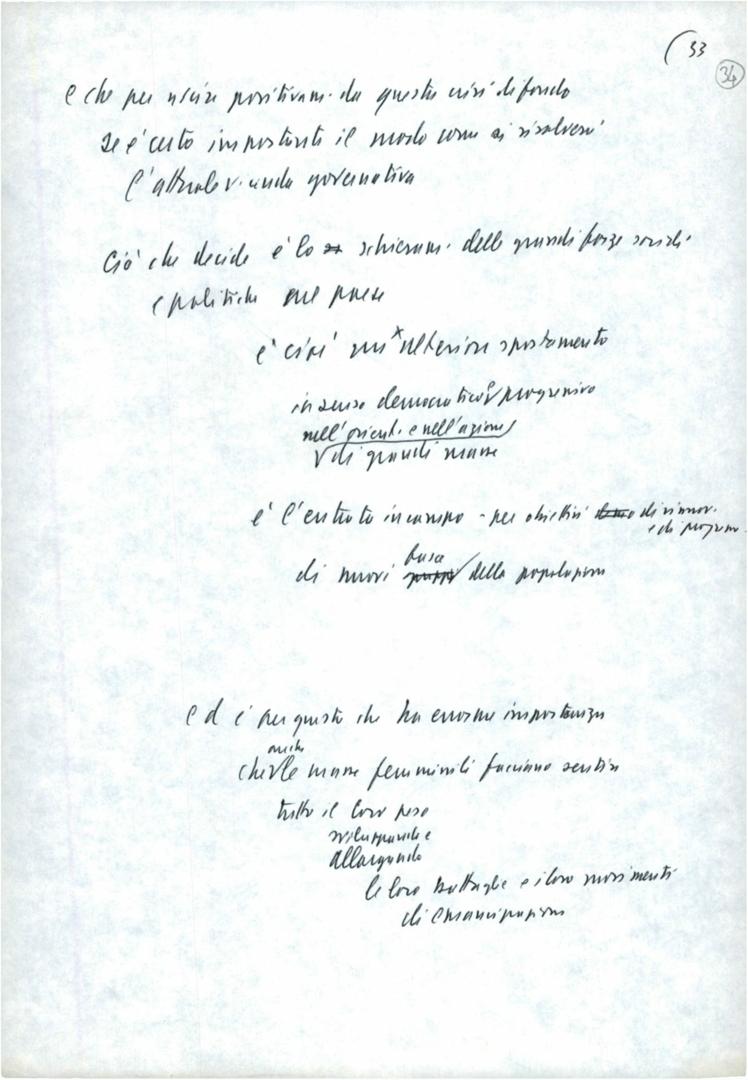 (33
34
e che per uscire positivam. da questa crisi di fondo
se è certo importante il modo come si risolverà
l'attuale vicenda governativa
Ciò che decide è lo schieram. delle grandi forze sociali
e politiche nel paese
è cioè un ulteriore spostamento
in senso democratico e progressivo
nell'orient. e nell'azione
di grandi masse
è l'entrata in campo - per obiettivi di rinnov.
e di progresso
di nuovi fasce della popolazione
ed è per questo che ha enorme importanza
anche
che le masse femminili facciano sentire
tutto il loro peso
sviluppando e
allargando
le loro battaglie e i loro movimenti
di emancipazione